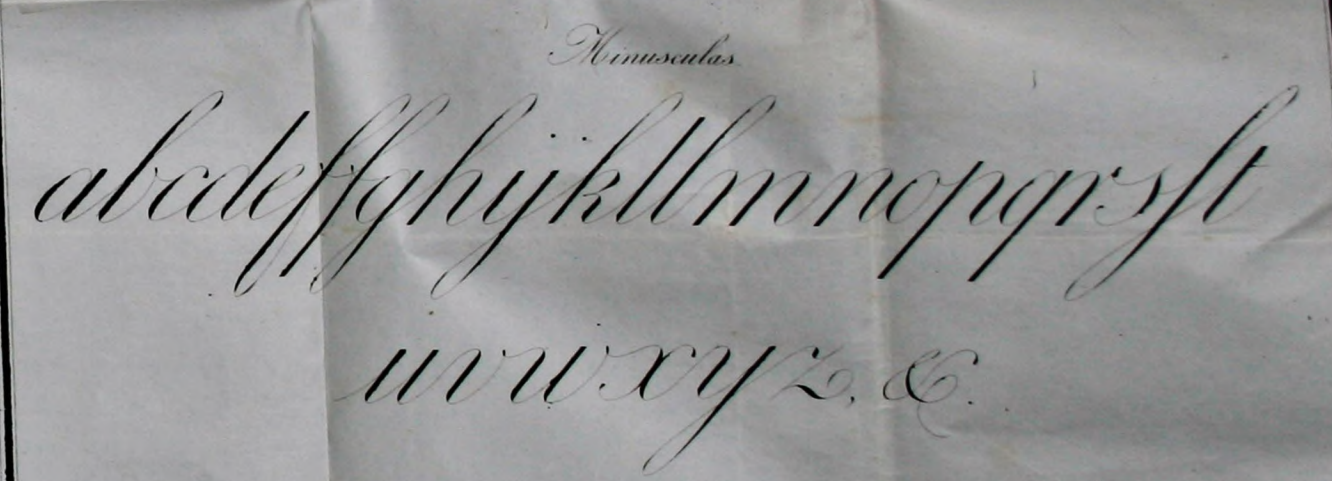 Minusculas
abcdeffghijkllmnopqrsſt
uvwxyz, &.